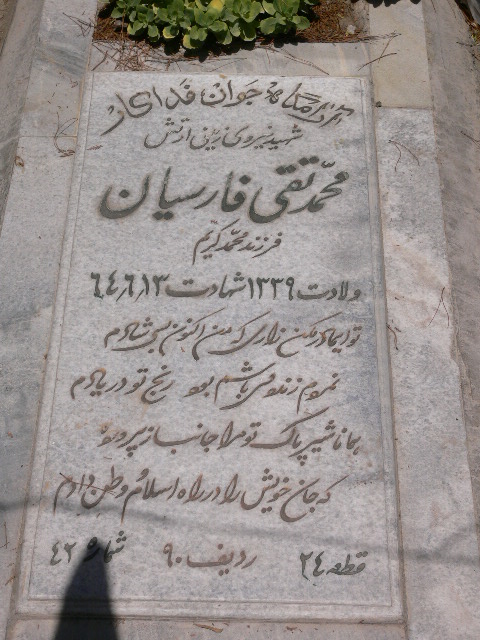 آرامگاه جوان فداکار
شهید نیروی زمینی ارتش
محمد تقی فارسیان
فرزند محمد کریم
ولادت ۱۳۳۹ شهادت ۶۴٫۶٫۱۳
تو ای مادر مکن زاری که من اکنون بسی شادم
نمردم زنده می باشم بود رنج تو در یادم
همانا شیر پاک تو مرا جانباز پروده
که جان خویش را در راه اسلام و وطن دادم
قطعه ۲۴ ردیف ۹۰ شماره ۴۲